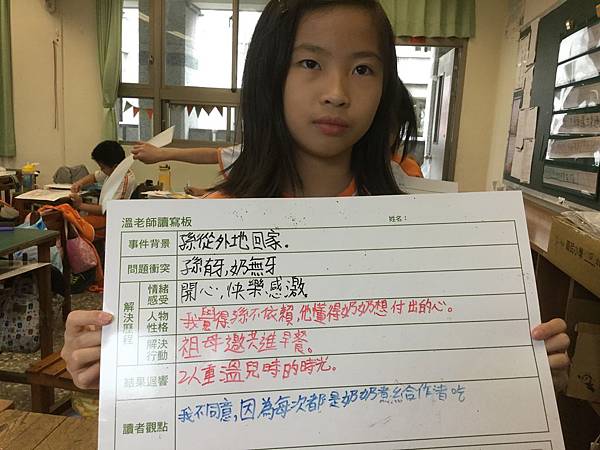 溫老師讀寫板 姓名：
事件背景 孫從外地回家.
問題衝突 孫有牙,奶無牙
解決歷程
情緒感受 開心,快樂,感激
人物性格 我覺得孫不依賴,他懂得奶奶想付出的心。
解決行動 祖母邀共進早餐。
結果迴響 2人重溫兒時的時光。
讀者觀點 我不同意,因為每次都是奶奶煮給